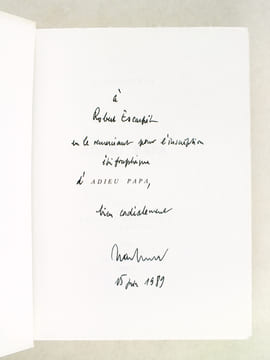 à
Robert Escarpit
en le remerciant pour l'inscription
épigraphique
d' ADIEU PAPA,
bien cordialement
15 juin 1989